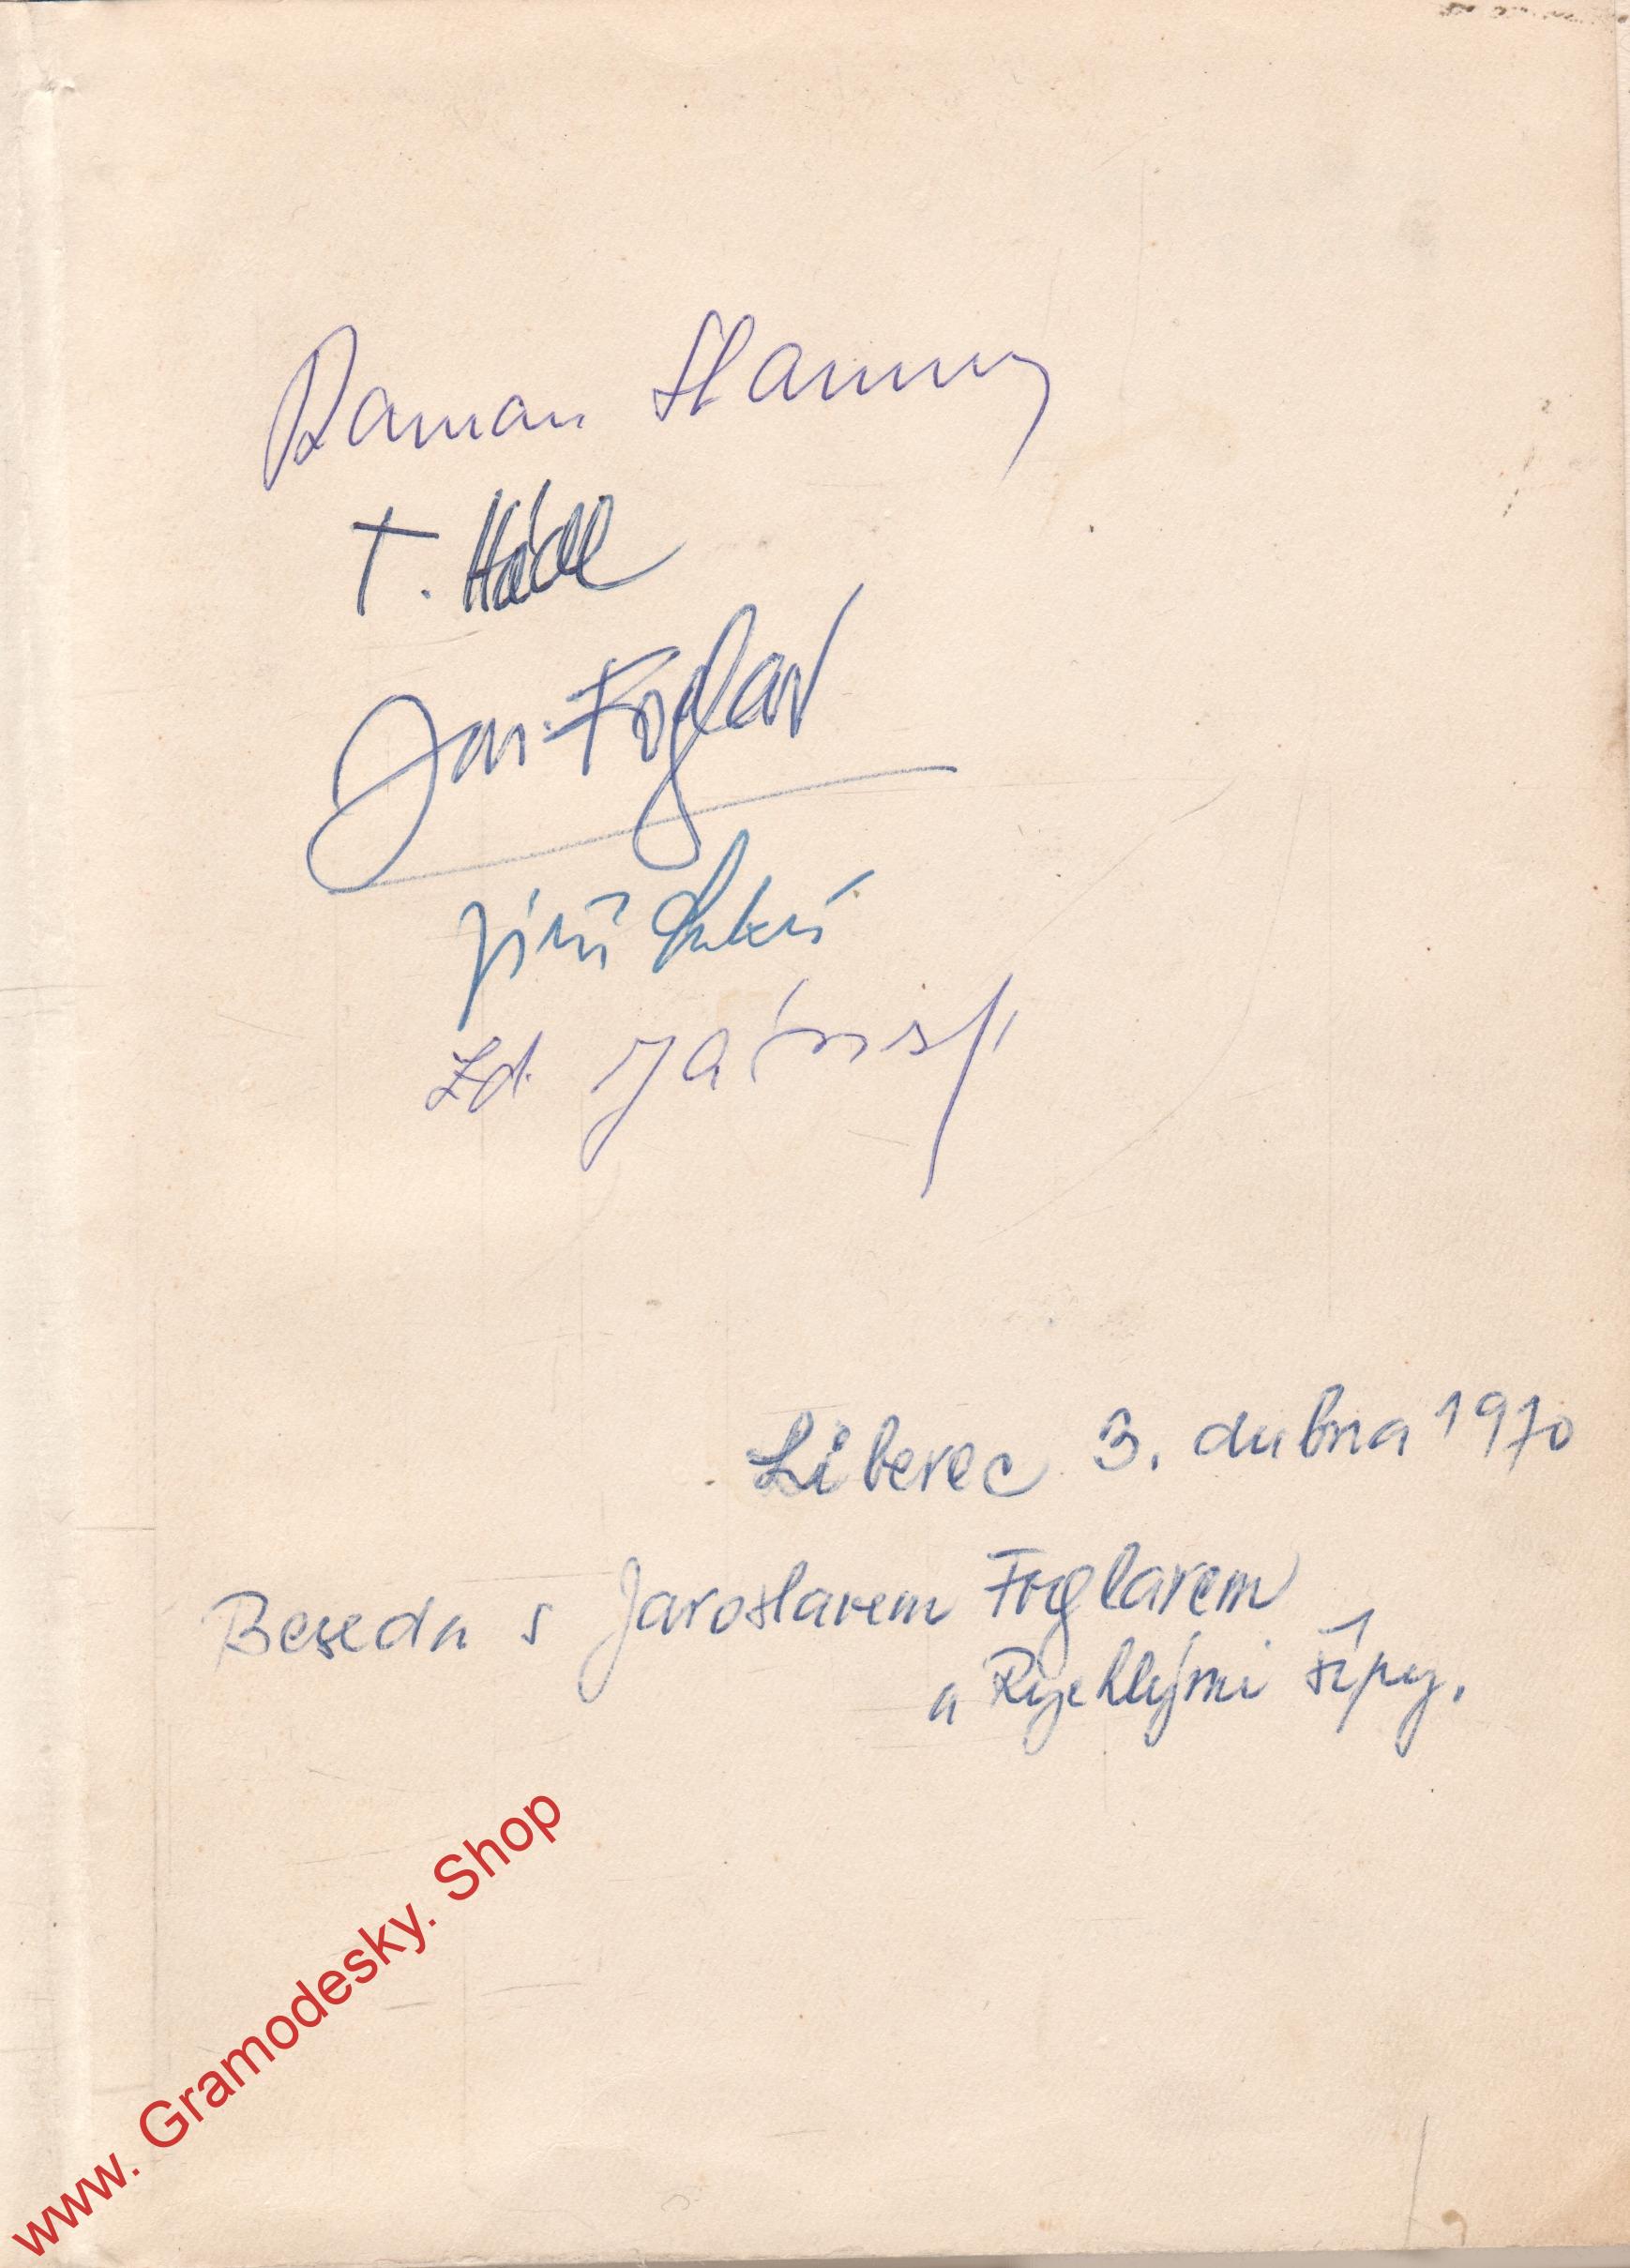 Roman
T. Hádl
Jar. Foglar
Jiří Lukeš
Zd.
Liberec 3. dubna 1970
Beseda s Jaroslavem Foglarem
a Rychlými šípy.
www. Gramodesky. Shop